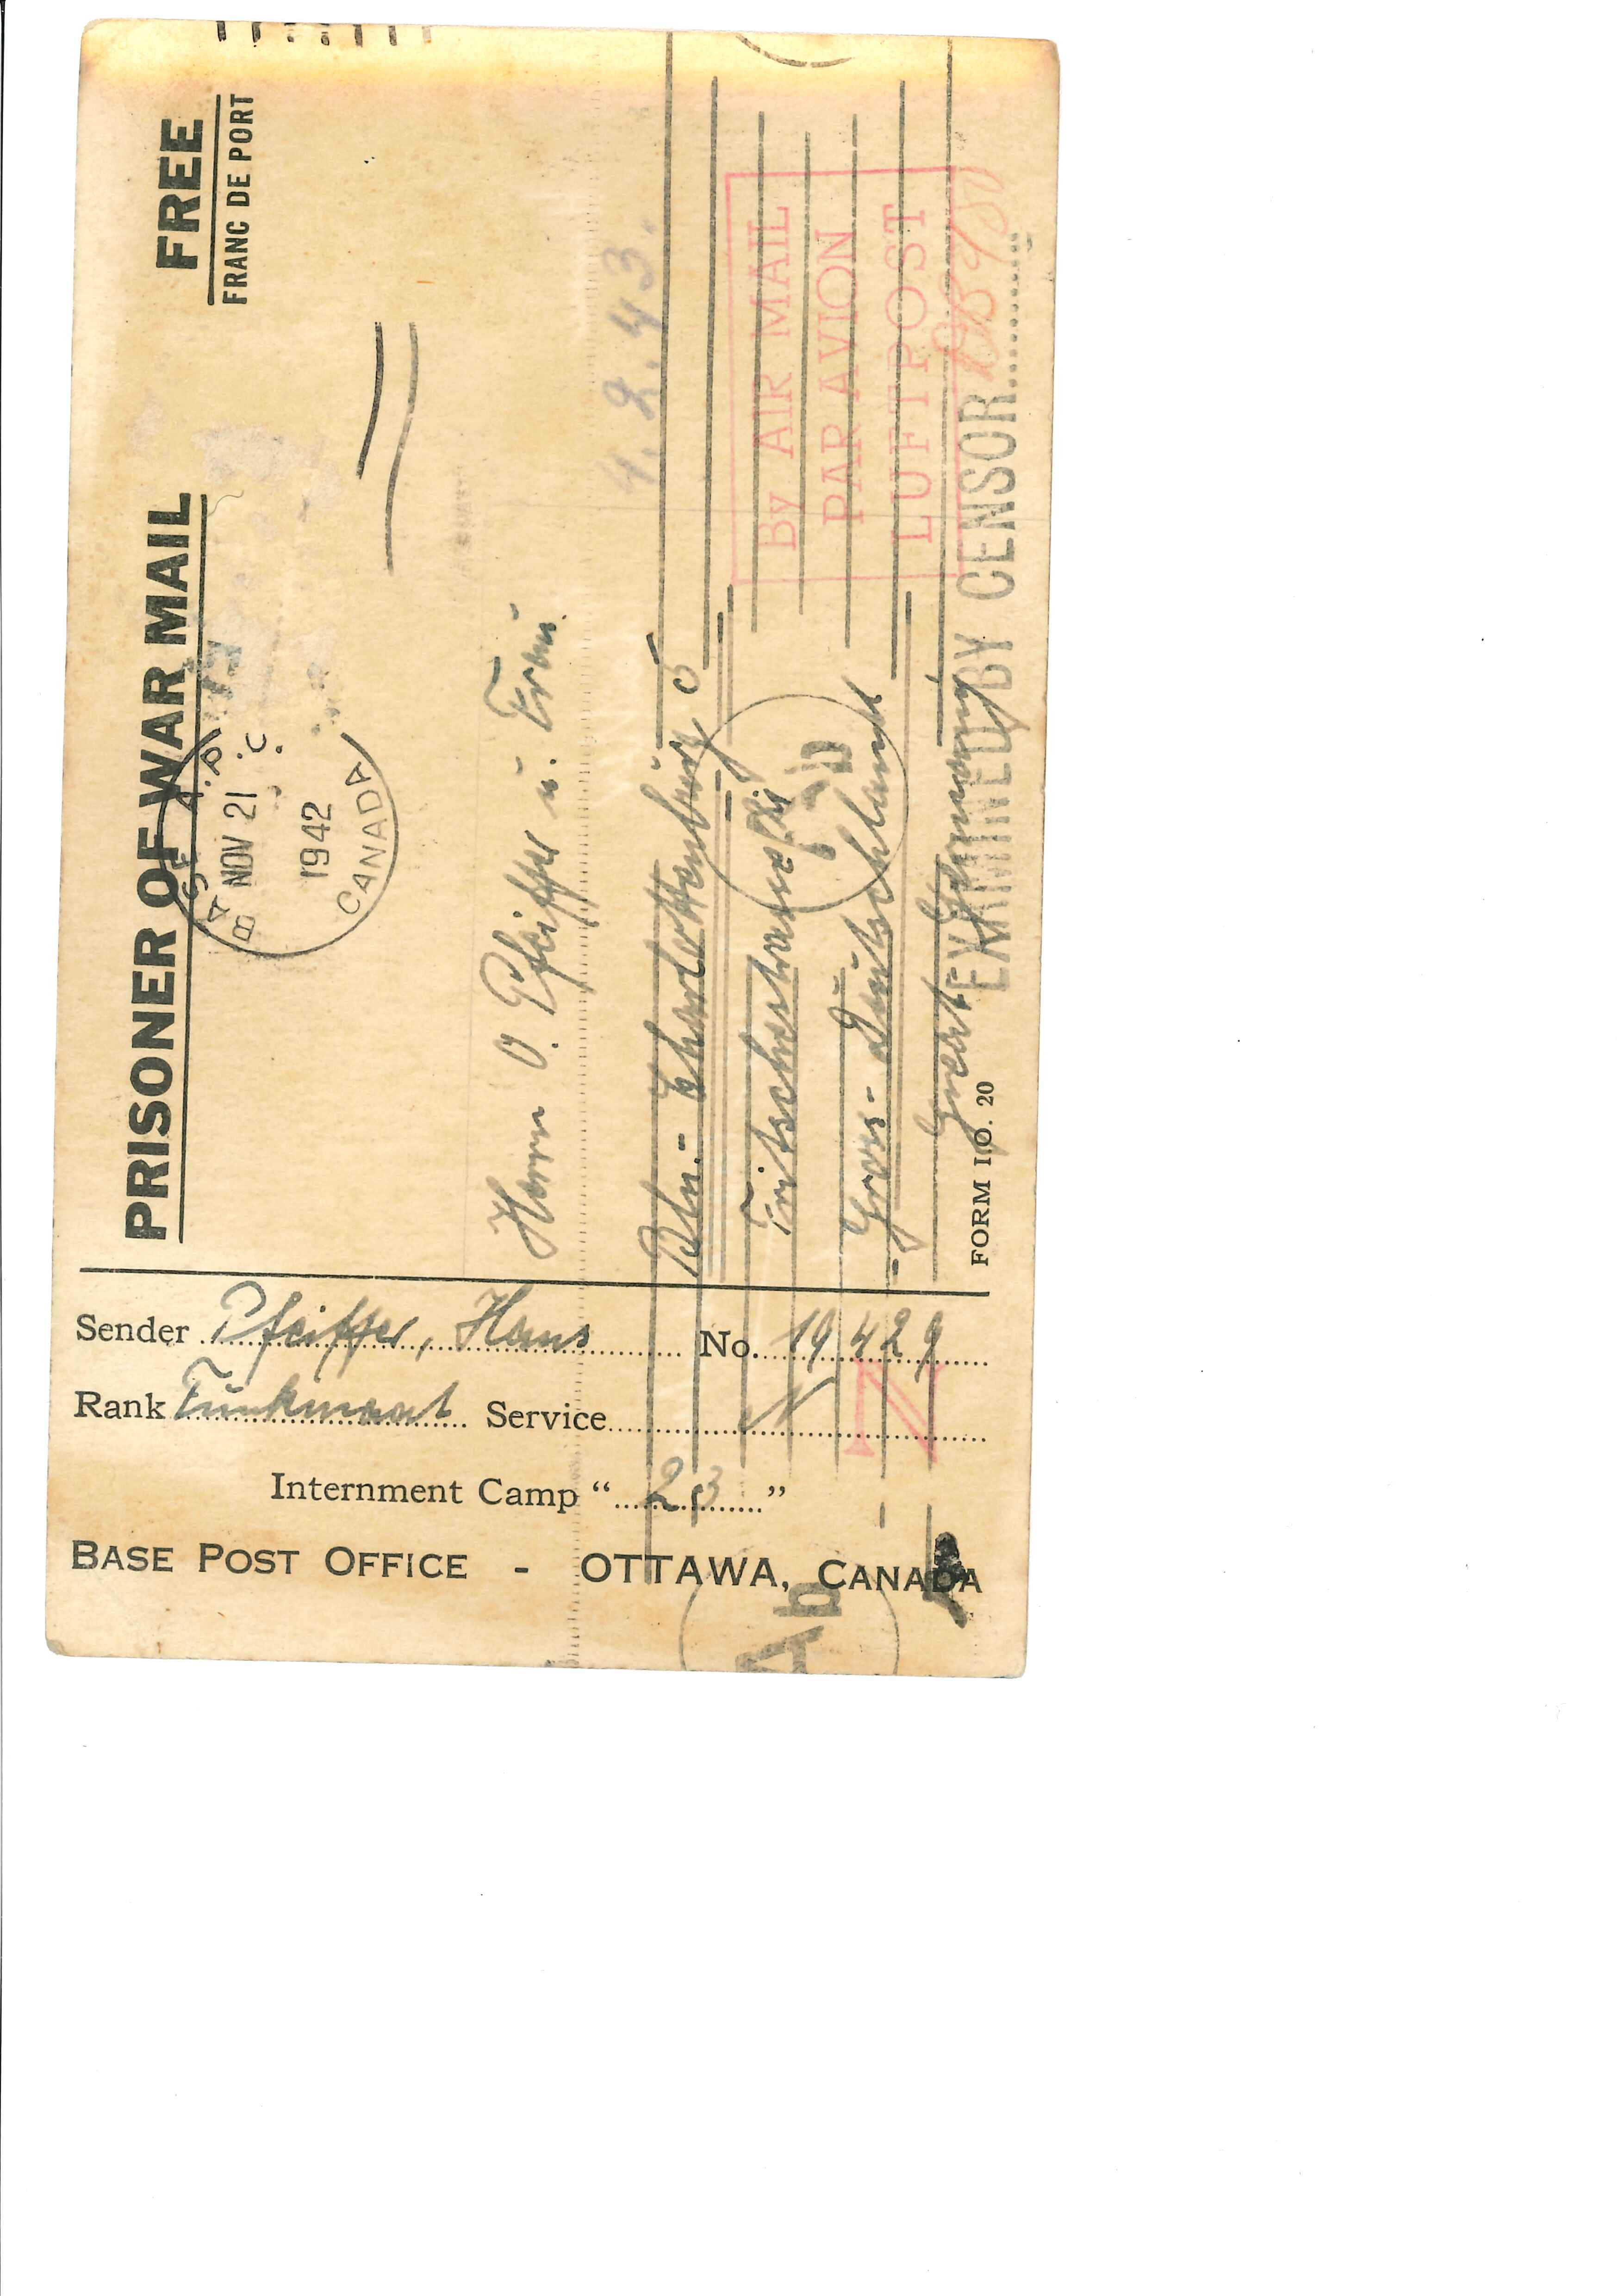 PRISONER OF WAR MAIL
FREE
FRANC DE PORT
BASE A.P.
NOV 21
1942
CANADA
Herrn O. Pfeiffer u. Frau.
4.2.43.
Bln.- Charlottenburg 5
Fritschestrasse
Gross-Deutschland
Great-Germany
By AIR MAIL
PAR AVION
LUFTPOST
EXAMINED BY CENSOR
FORM I.O. 20
Sender Pfeiffer, Hans No. 19429
Rank Funkmaat Service
Internment Camp “ 23 ”
BASE POST OFFICE - OTTAWA, CANADA
Ab